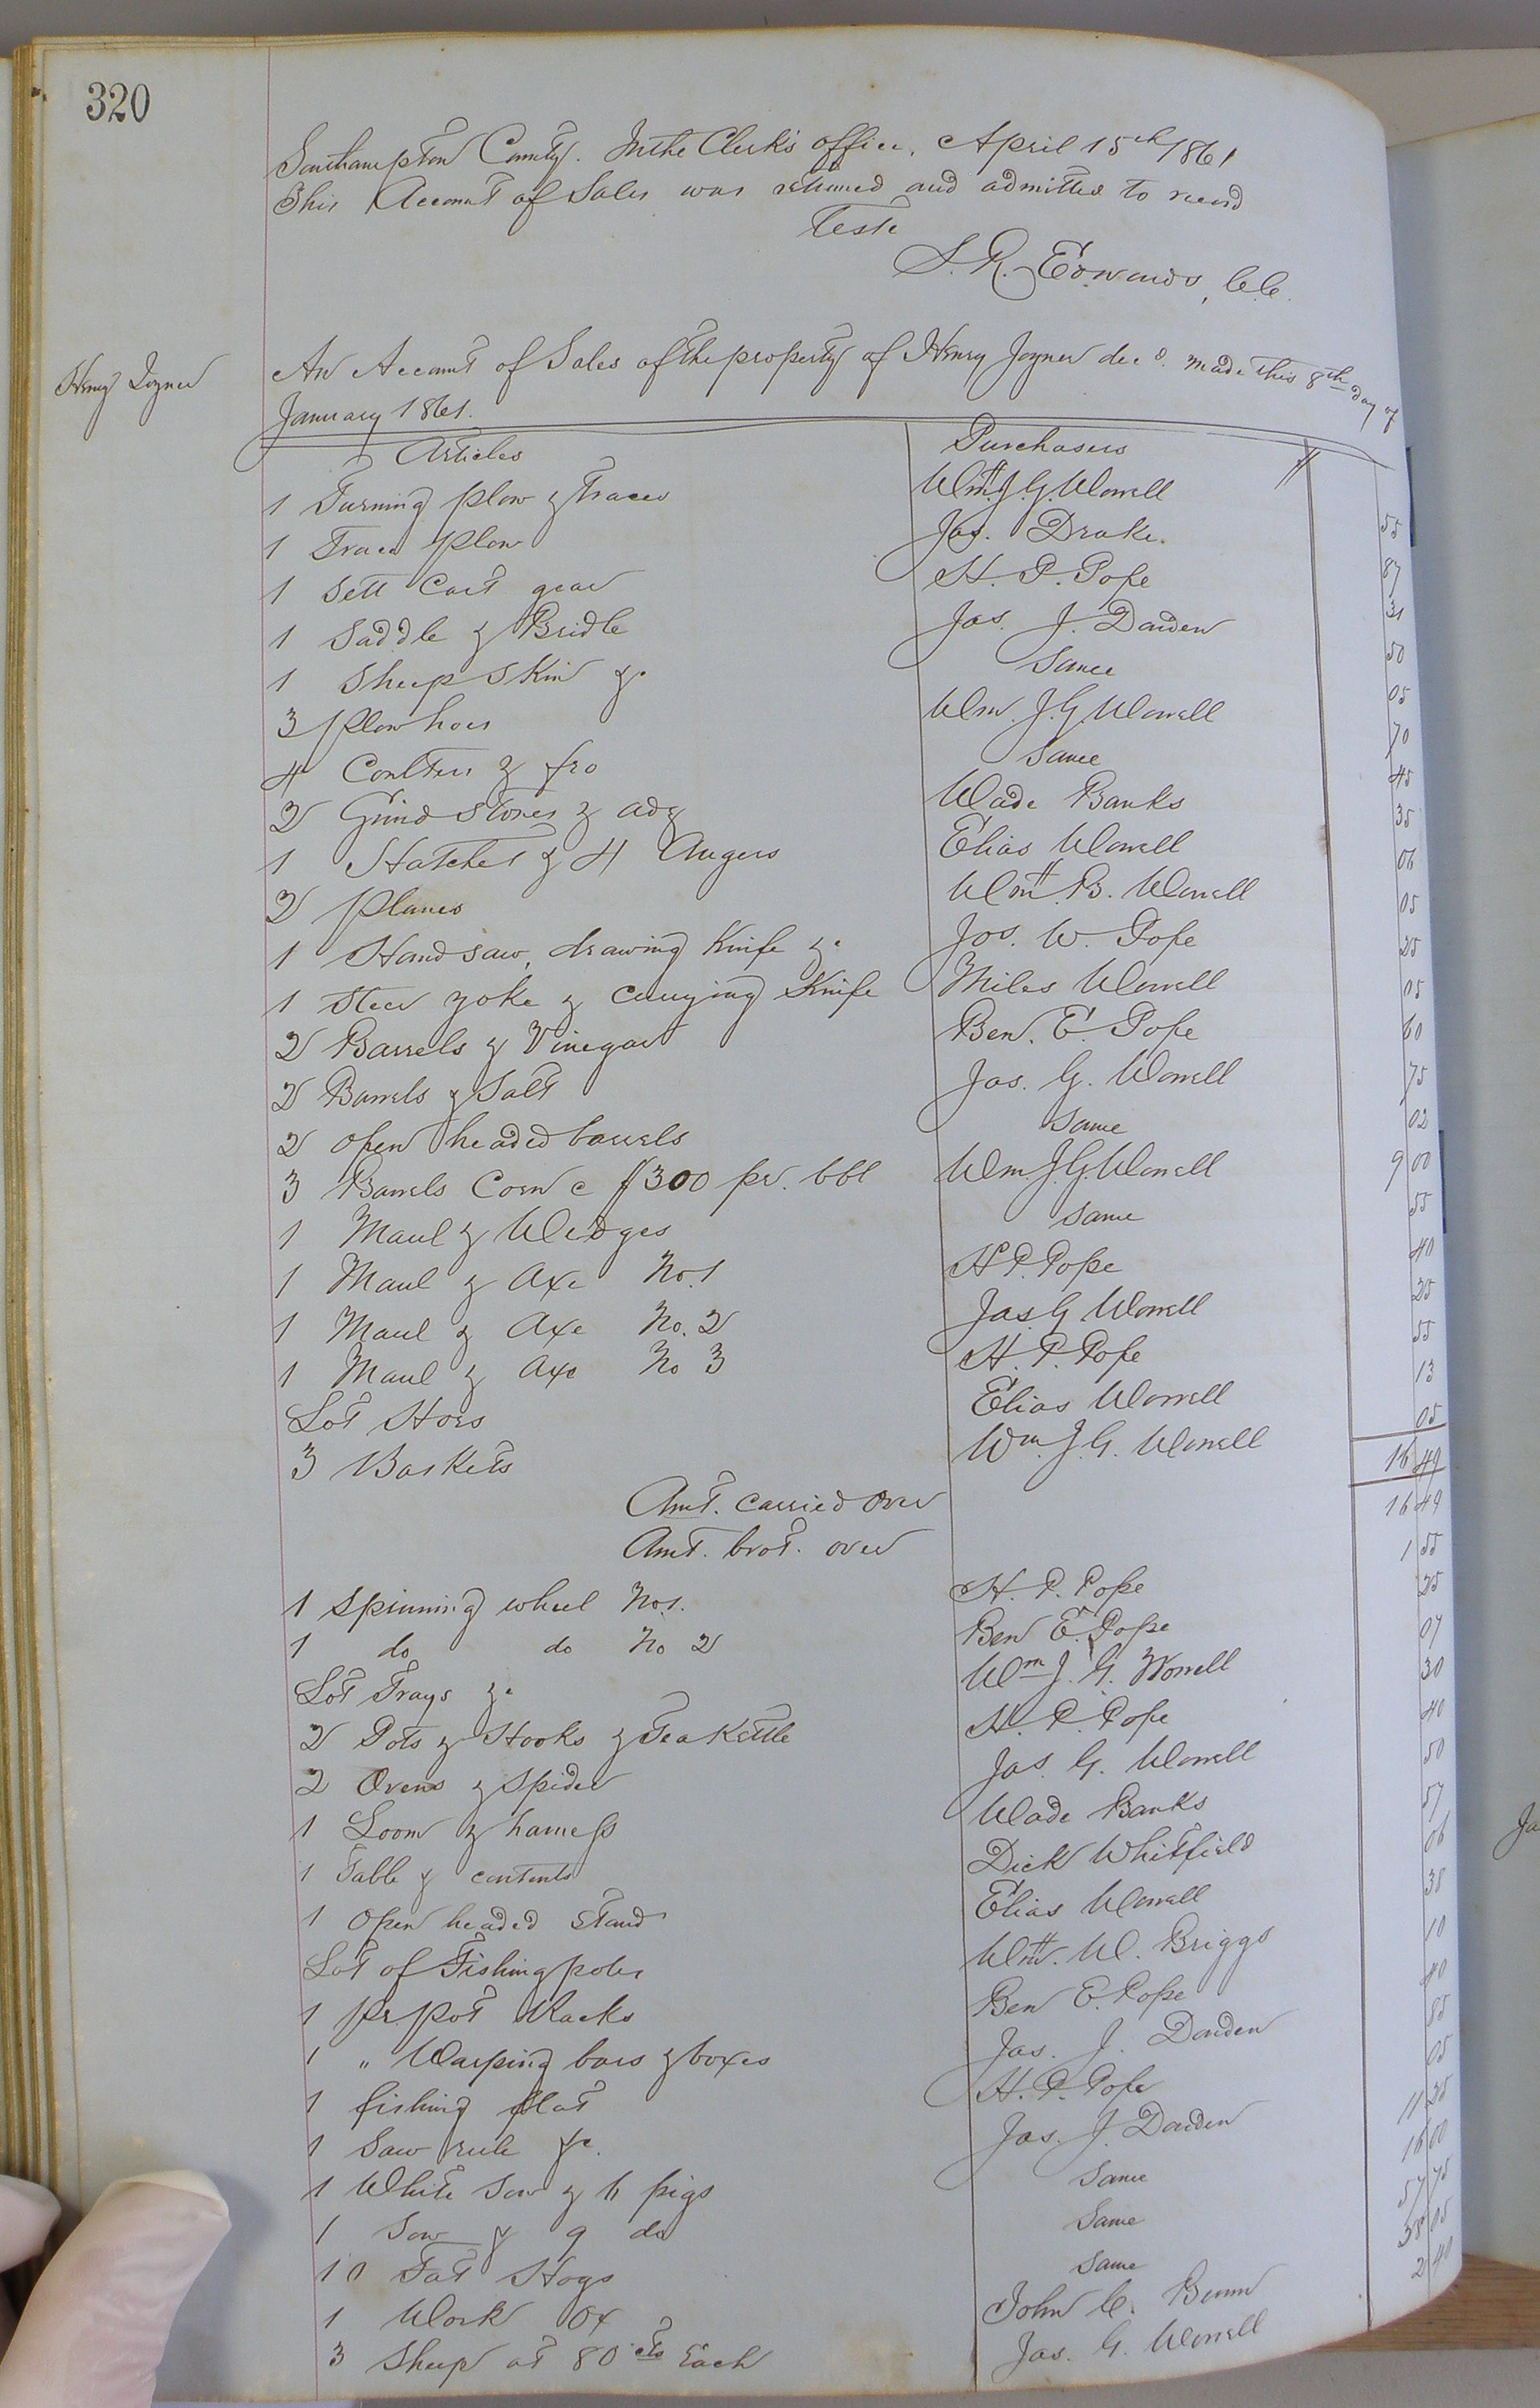 320
Southampton County. In the Clerk's office, April 15th 1861
This Account of Sales was returned and admitted to record
Teste
L. R. Edwards, C.C.
Henry Joyner
An Account of Sales of the property of Henry Joyner decd. made this 8th day of
January 1861.
Articles Purchasers $
1 Turning plow & traces Wm. J. G. Worrell 55
1 Trace plow Jas. Drake. 87
1 Sett Cart gear H. P. Pope 31
1 Saddle & Bridle Jas. J. Darden 50
1 Sheep Skin &c Same 05
3 plow hoes Wm. J. G. Worrell 70
4 Coulters & fro Same 45
2 Grind Stones & adz Wade Banks 35
1 Hatchet & 4 Augers Elias Worrell 06
2 planes Wm. B. Worrell 05
1 Hand saw, drawing Knife &c Jos. W. Pope 25
1 Steer yoke & Knife Miles Worrell 05
2 Barrels & Vinegar Ben. E. Pope 60
2 Barrels & Salt Jas. G. Worrell 75
2 open headed barrels Same 02
3 Barrels Corn c $300 pr. bbl Wm. J. G. Worrell 9 00
1 Maul & Wedges same 55
1 Maul & Axe No. 1 H. P. Pope 40
1 Maul & Axe No. 2 Jas. G Worrell 25
1 Maul & Axe No 3 H. P. Pope 55
Lot Hoes Elias Worrell 13
3 Baskets Wm. J. G. Worrell 05
16 49
Amt. carried Over 16 49
Amt. brot. over
1 Spinning wheel No. 1. H. P. Pope 1 55
1 do do No 2 Ben E. Pope 25
Lot Trays &c Wm J. G. Worrell 07
2 Pots & Hooks & Tea Kettle H. P. Pope 30
2 Ovens & Spider Jas. G. Worrell 40
1 Loom & harness Wade Banks 50
1 Table & contents Dick Whitfield 57
1 Open headed Stand Elias Worrell 06
Lot of Fishing poles Wm. W. Briggs 38
1 pr. pot Racks Ben E. Pope 10
1 " Warping bars & boxes Jas. J. Darden 40
1 fishing flat H. P. Pope 85
1 Saw rule &c. Jas. J. Darden 05
1 White Sow & 6 pigs Same 11 25
1 Sow & 9 do Same 16 00
10 Fat Hogs Same 57 75
1 Work Ox John C. Bunn 38 05
3 Sheep at 80 cts Each Jas. G. Worrell 2 40